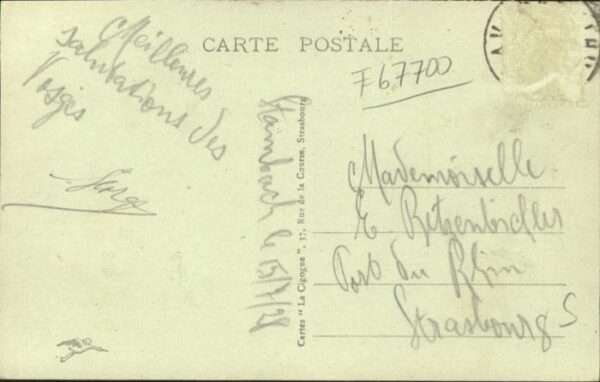 CARTE POSTALE
Meilleures
salutations des
Vosges
Serge
Stambach le 15/7/28
Cartes "La Cigogne", 37, Rue de la Course, Strasbourg
F67700
Mademoiselle
E.
Port du Rhin
Strasbourg